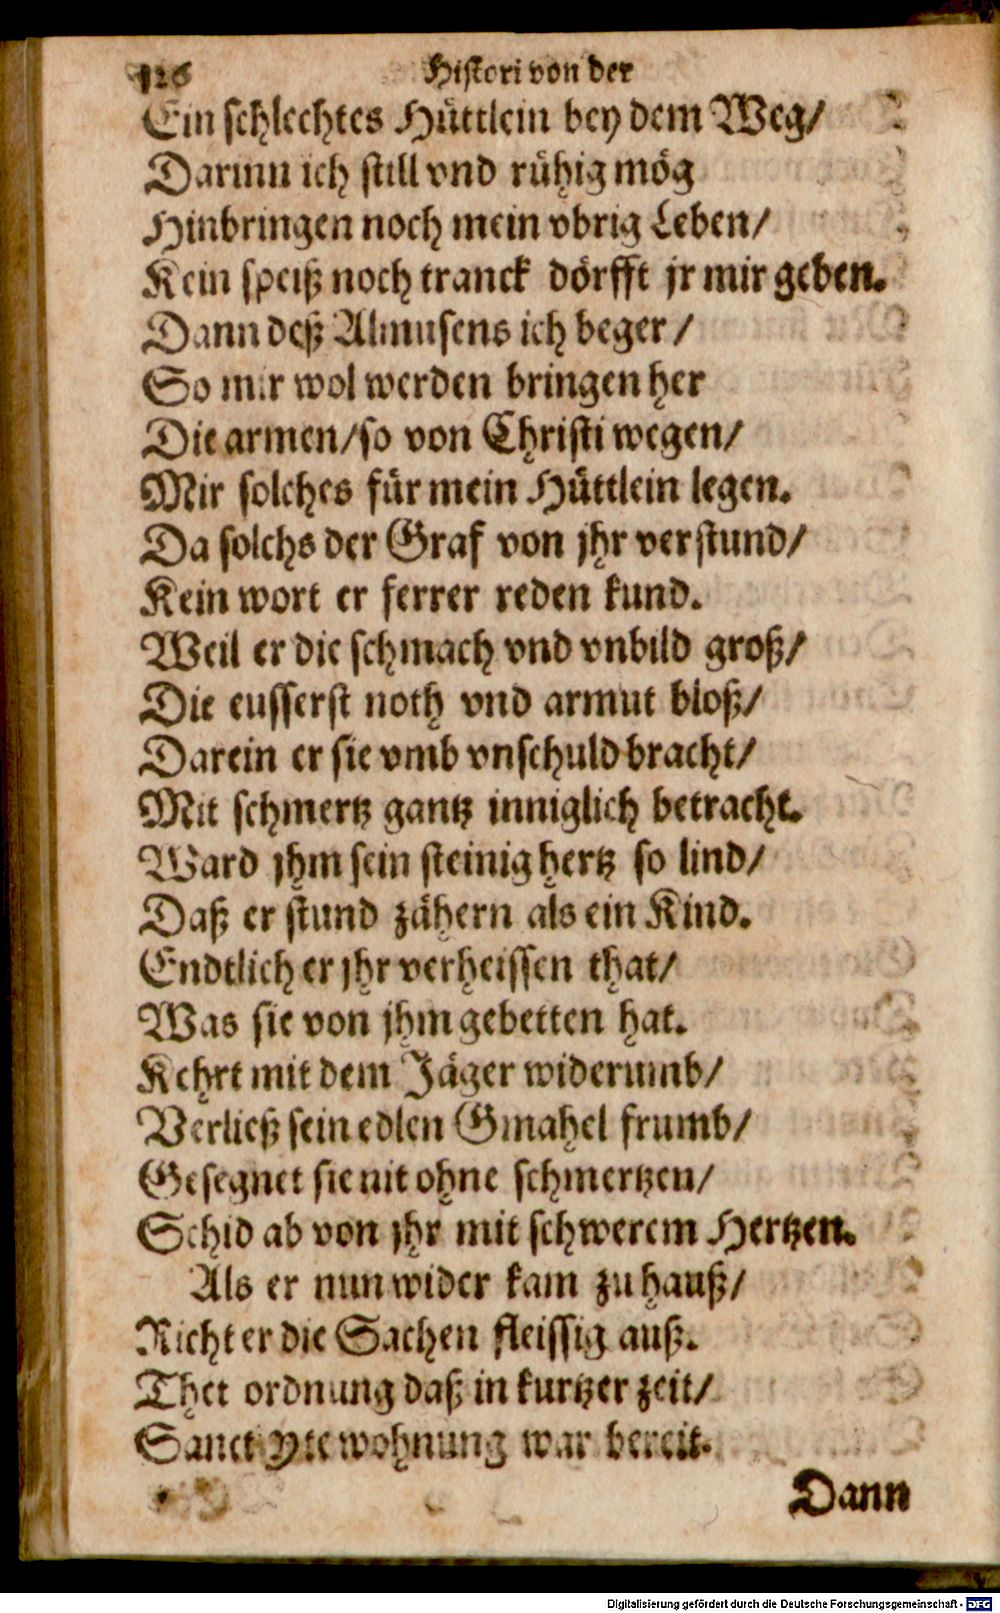 126 Histori von der
Ein schlechtes Hüttlein bey dem Weg/
Darinn ich still vnd rühig mög
Hinbringen noch mein vbrig Leben/
Kein speiß noch tranck dörfft jr mir geben.
Dann deß Almusens ich beger/
So mir wol werden bringen her
Die armen/so von Christi wegen/
Mir solches für mein Hüttlein legen.
Da solchs der Graf von jhr verstund/
Kein wort er ferrer reden kund.
Weil er die schmach vnd vnbild groß/
Die eusserst noth vnd armut bloß/
Darein er sie vmb vnschuld bracht/
Mit schmertz gantz inniglich betracht.
Ward jhm sein steinig hertz so lind/
Daß er stund zähern als ein Kind.
Endtlich er jhr verheissen that/
Was sie von jhm gebetten hat.
Kehrt mit dem Jäger widerumb/
Verließ sein edlen Gmahel frumb/
Gesegnet sie nit ohne schmertzen/
Schid ab von jhr mit schwerem Hertzen.
Als er nun wider kam zu hauß/
Richt er die Sachen fleissig auß.
Thet ordnung daß in kurtzer zeit/
Sanct Yte wohnung war bereit.
Dann
Digitalisierung gefördert durch die Deutsche Forschungsgemeinschaft - DFG